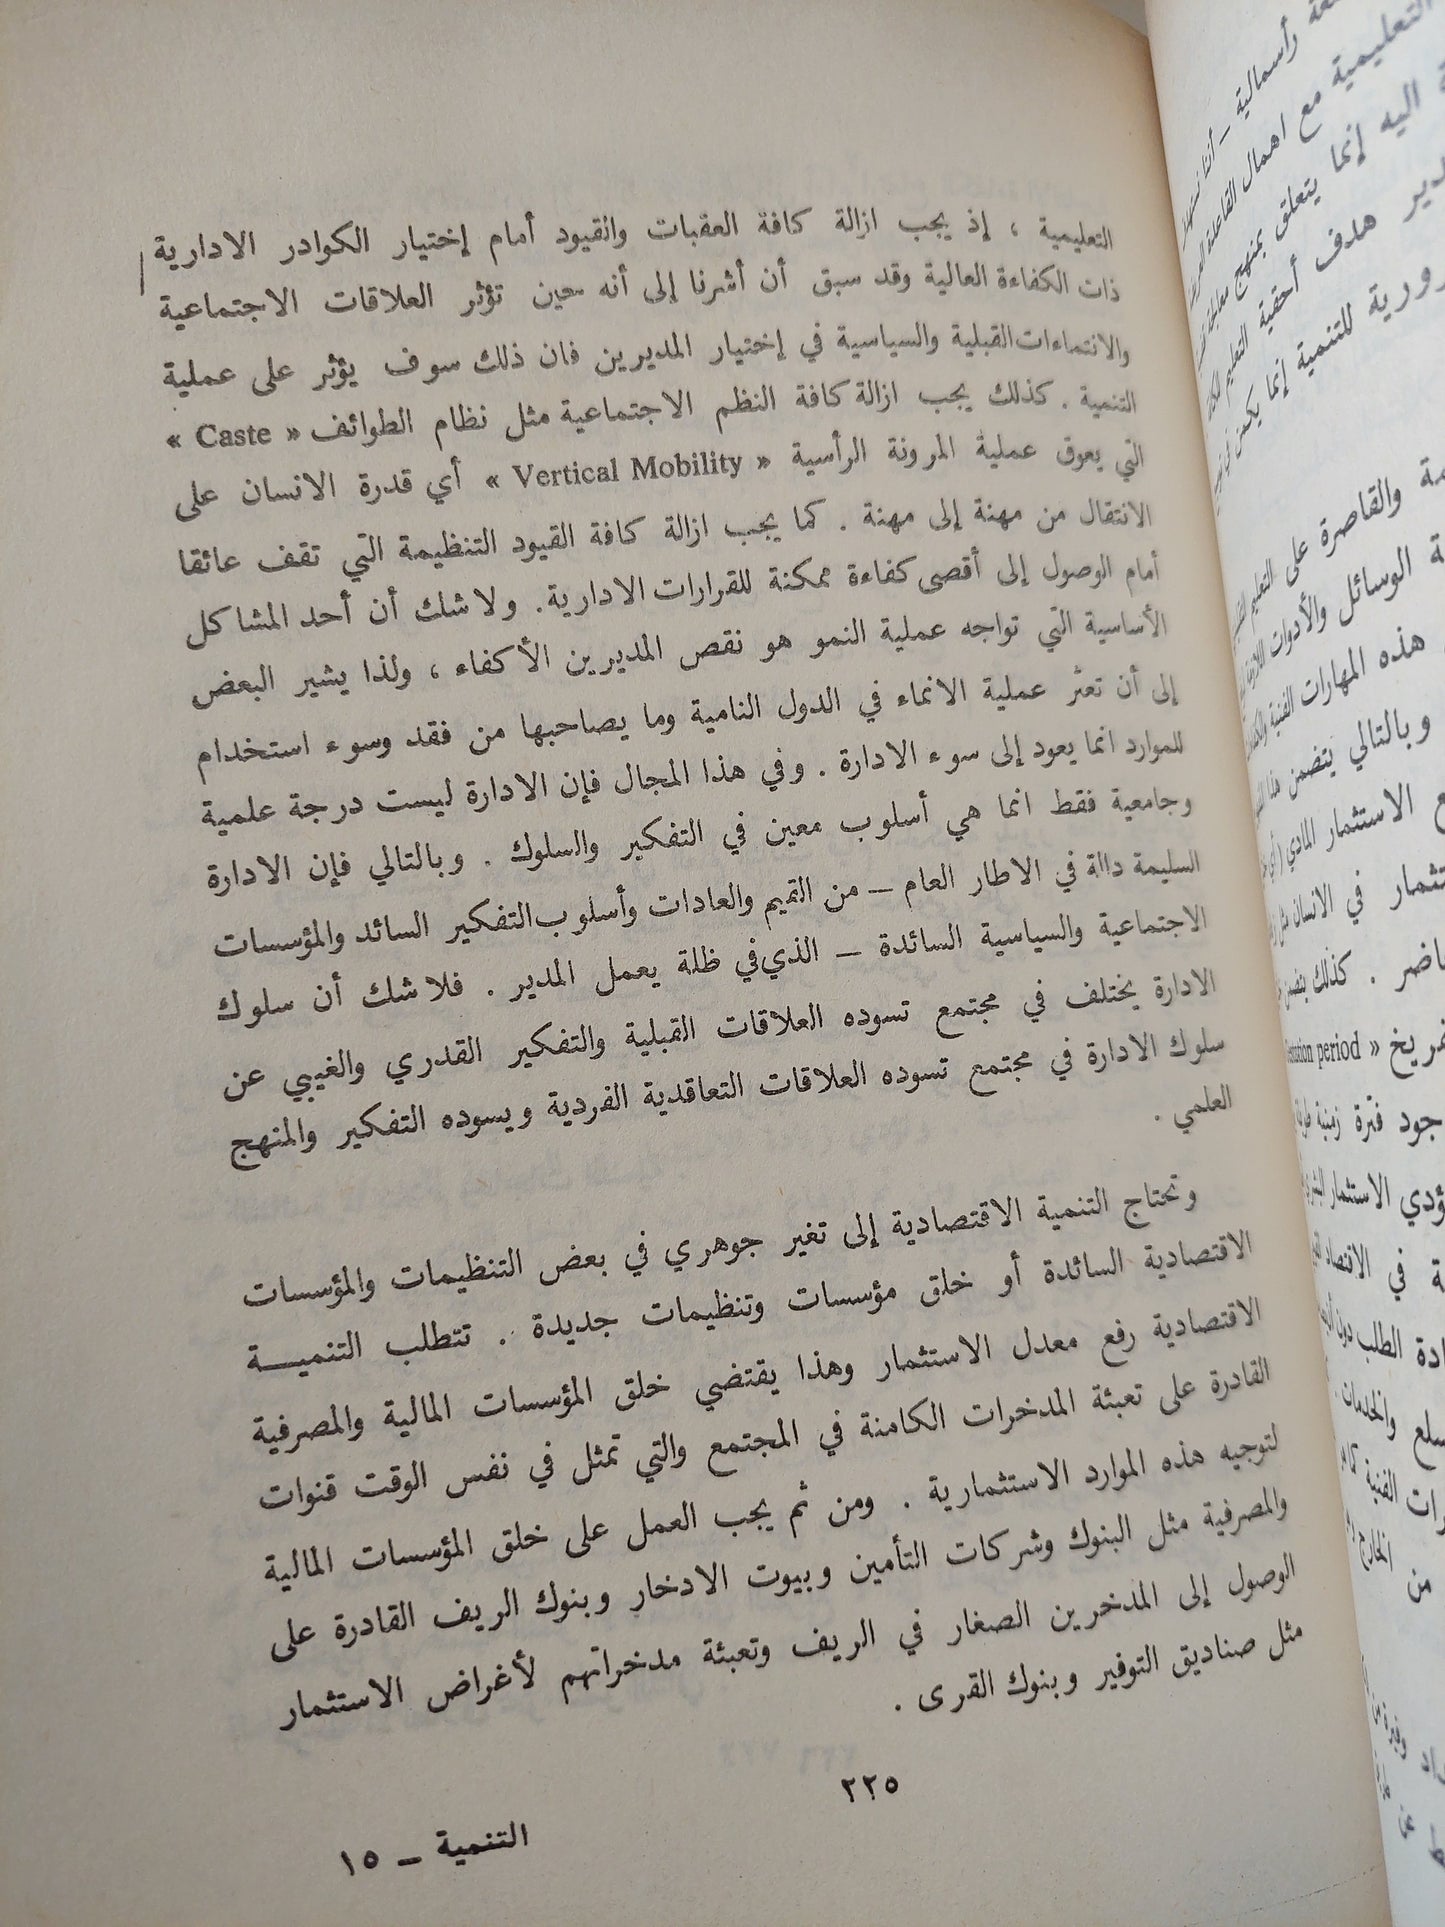 التعليمية ، إذ يجب ازالة كافة العقبات والقيود أمام إختيار الكوادر الادارية
ذات الكفاءة العالية وقد سبق أن أشرنا إلى أنه حين تؤثر العلاقات الاجتماعية
والانتماءات القبلية والسياسية في إختيار المديرين فان ذلك سوف يؤثر على عملية
التنمية . كذلك يجب ازالة كافة النظم الاجتماعية مثل نظام الطوائف « Caste »
التي يعوق عملية المرونة الرأسية « Vertical Mobility » أي قدرة الانسان على
الانتقال من مهنة إلى مهنة . كما يجب ازالة كافة القيود التنظيمة التي تقف عائقا
أمام الوصول إلى أقصى كفاءة ممكنة للقرارات الادارية. ولا شك أن أحد المشاكل
الأساسية التي تواجه عملية النمو هو نقص المديرين الأكفاء ، ولذا يشير البعض
إلى أن تعثر عملية الانماء في الدول النامية وما يصاحبها من فقد وسوء استخدام
للموارد انما يعود إلى سوء الادارة . وفي هذا المجال فإن الادارة ليست درجة علمية
وجامعية فقط انما هي أسلوب معين في التفكير والسلوك . وبالتالي فإن الادارة
السليمة دالة في الاطار العام – من القيم والعادات وأسلوب التفكير السائد والمؤسسات
الاجتماعية والسياسية السائدة – الذي في ظلة يعمل المدير . فلا شك أن سلوك
الادارة يختلف في مجتمع تسوده العلاقات القبلية والتفكير القدري والغيبي عن
سلوك الادارة في مجتمع تسوده العلاقات التعاقدية الفردية ويسوده التفكير والمنهج
العلمي .
وتحتاج التنمية الاقتصادية إلى تغير جوهري في بعض التنظيمات والمؤسسات
الاقتصادية السائدة أو خلق مؤسسات وتنظيمات جديدة . تتطلب التنميــة
الاقتصادية رفع معدل الاستثمار وهذا يقتضي خلق المؤسسات المالية والمصرفية
القادرة على تعبئة المدخرات الكامنة في المجتمع والتي تمثل في نفس الوقت قنوات
لتوجيه هذه الموارد الاستثمارية . ومن ثم يجب العمل على خلق المؤسسات المالية
والمصرفية مثل البنوك وشركات التأمين وبيوت الادخار وبنوك الريف القادرة على
الوصول إلى المدخرين الصغار في الريف وتعبئة مدخراتهم لأغراض الاستثمار
مثل صناديق التوفير وبنوك القرى .
٢٢٥
التنمية – ١٥
رأسمالية – أننا
التعليمية مع اهمال القاعدة
اليه إنما يتعلق بمنهج معالجة
هدف أحقية التعليم لكل
للتنمية إنما يكمن في
والقاصرة على التعليم
الوسائل والأدوات اللازمة
هذه المهارات الفنية
وبالتالي يتضمن هذا
الاستثمار المادي
في الانسان مثل
. كذلك يتضمن
« period
فترة زمنية
الاستثمار
في الاقتصاد
الطلب دون
والخدمات .
الفنية
من الخارج